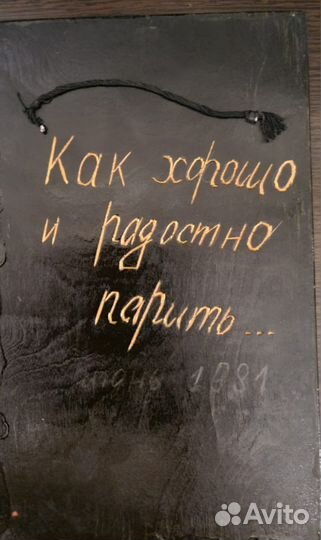 Как хорошо
и радостно
парить...
июнь 1981
Avito